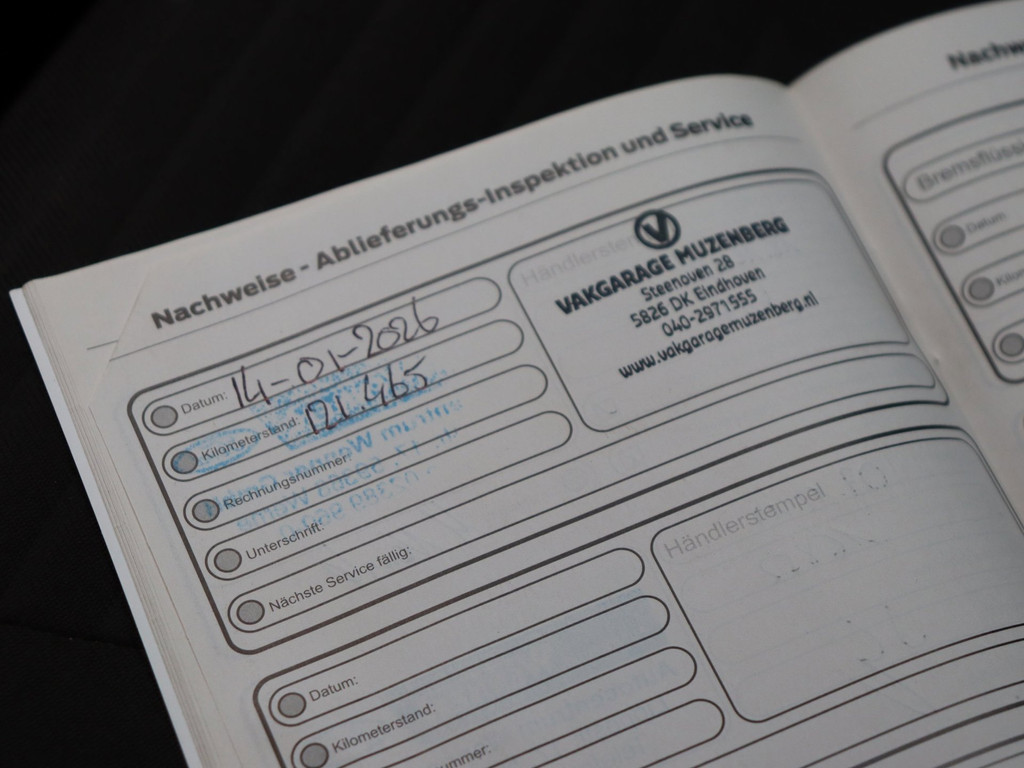 Nachweise - Ablieferungs-Inspektion und Service
Datum: 14-01-2026
Kilometerstand: 121.465
Rechnungsnummer:
Unterschrift:
Nächste Service fällig:
Händlerstem
V
VAKGARAGE MUZENBERG
Steenoven 28
5826 DK Eindhoven
040-2971555
www.vakgaragemuzenberg.nl
Datum:
Kilometerstand:
nummer:
Händlerstempel
Nachw
Bremsflüssi
Datum
Kilom